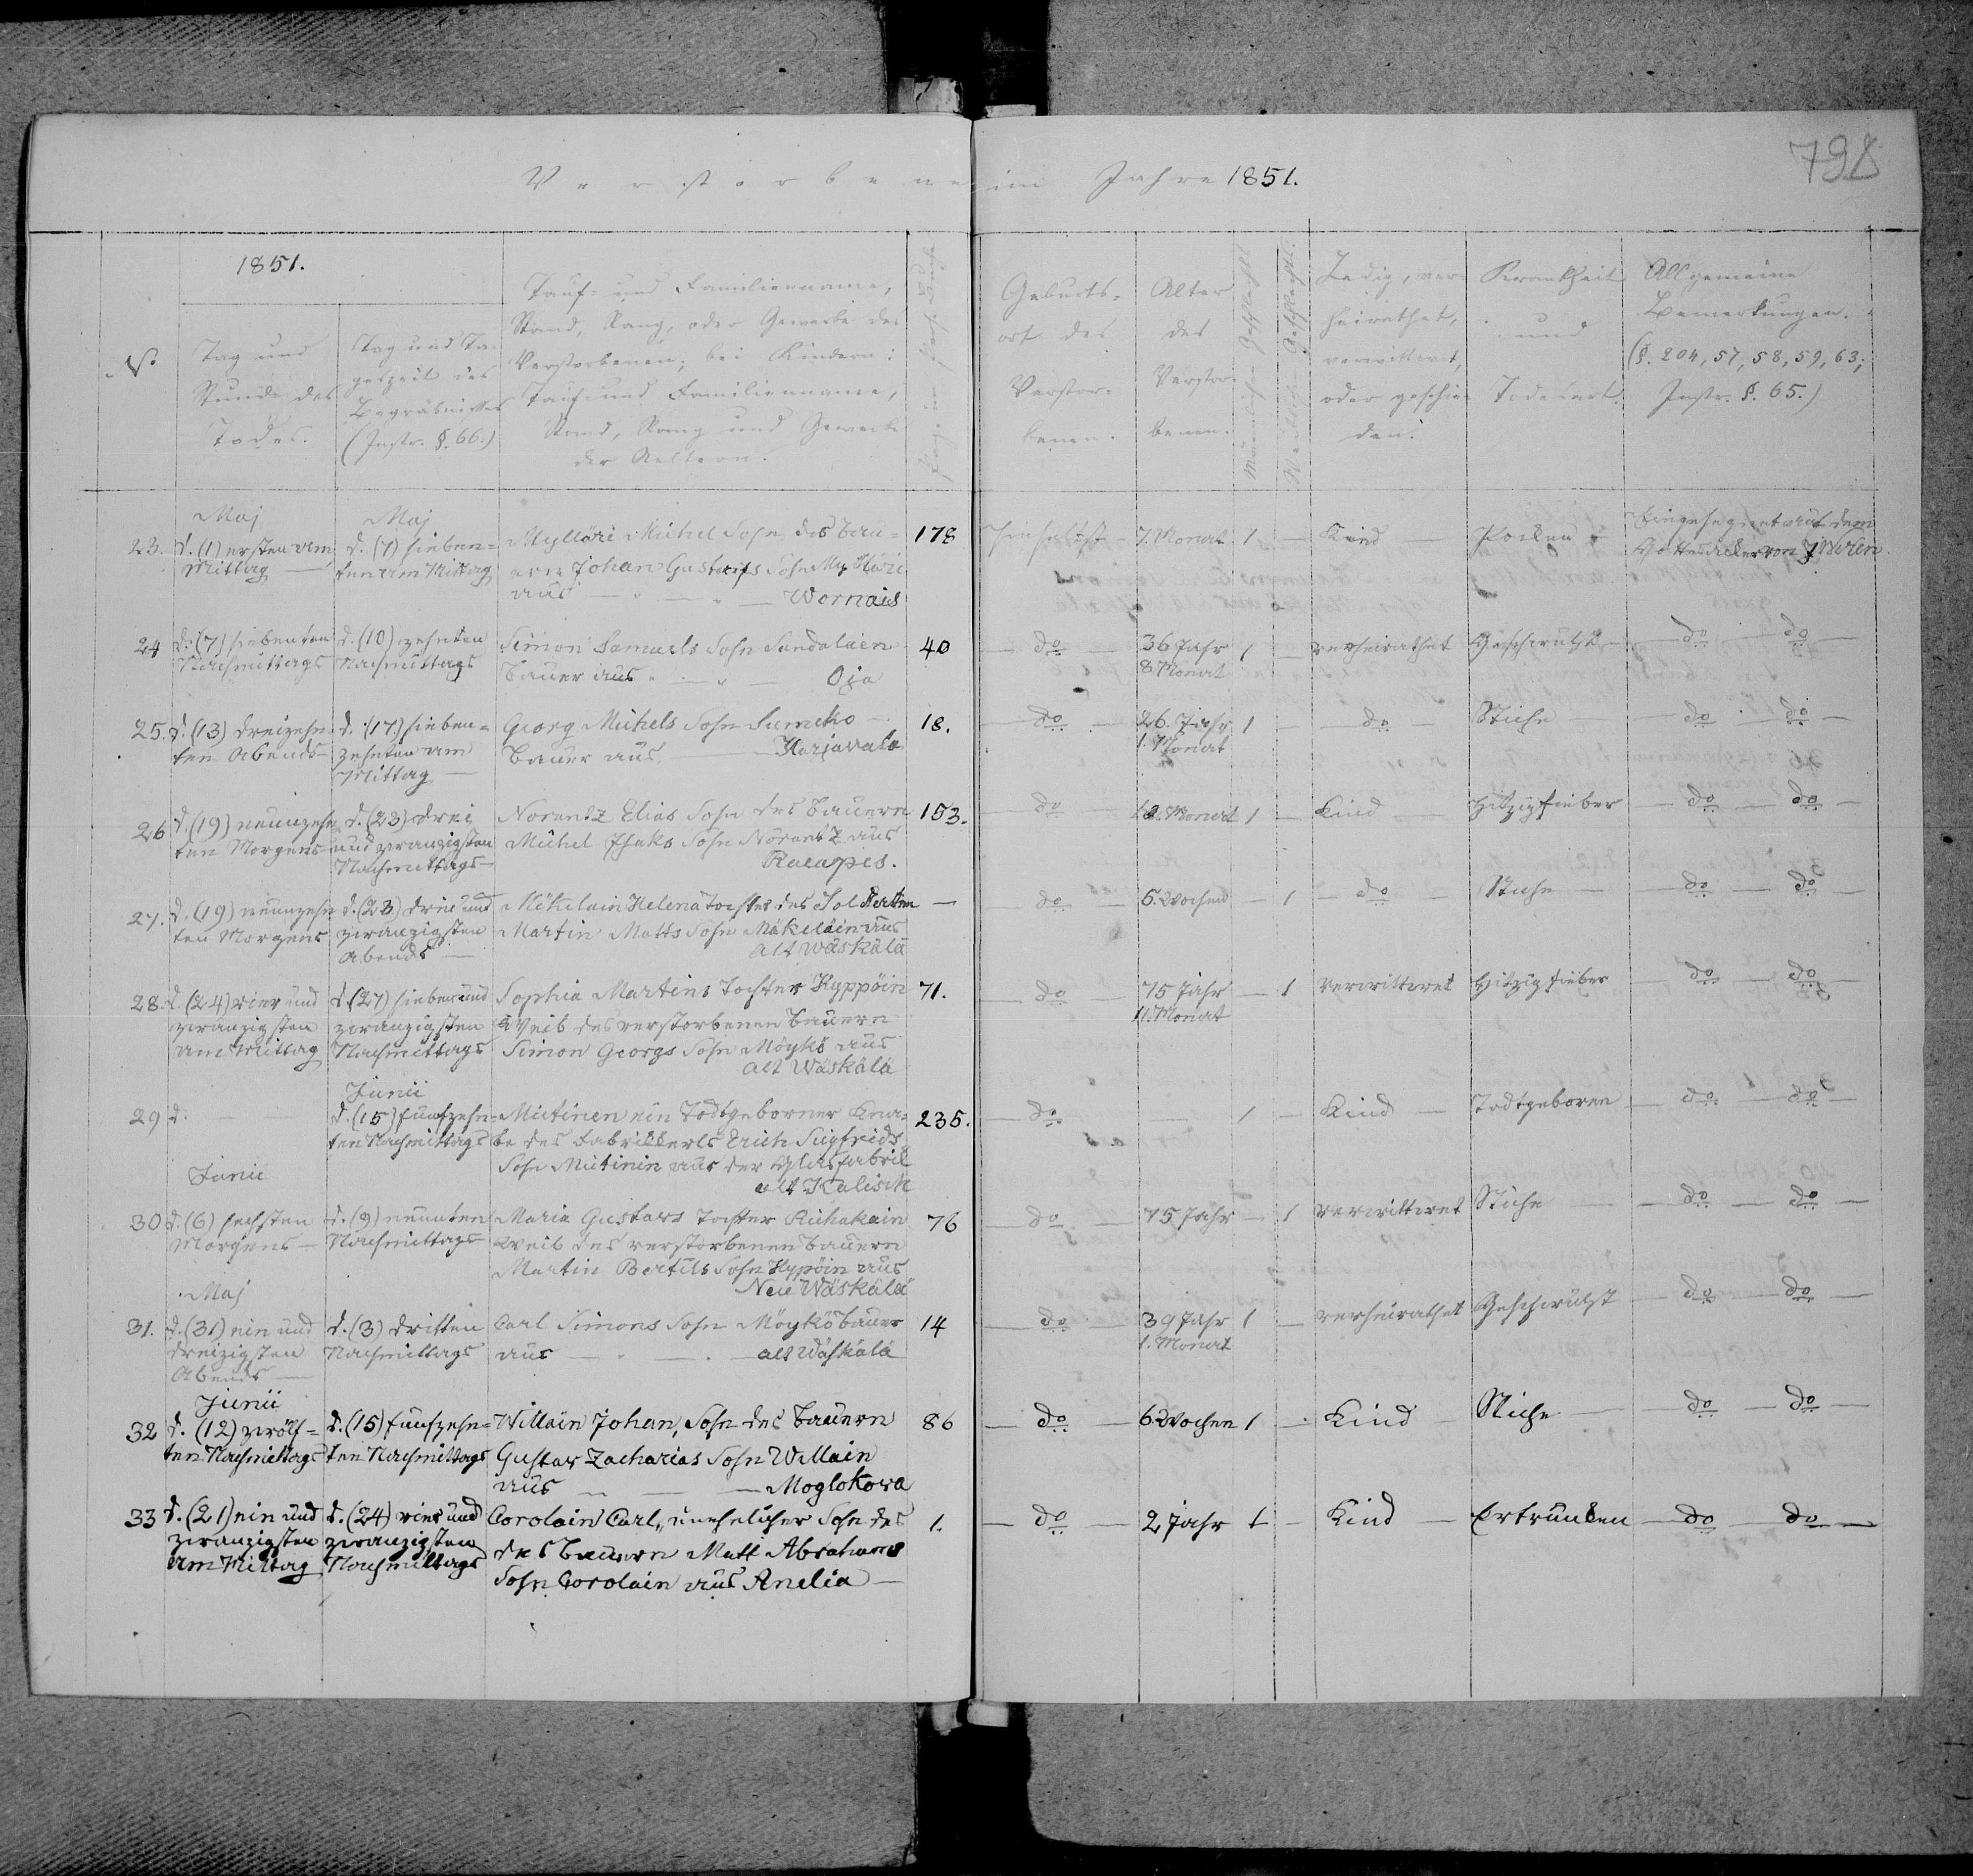 Verstorbene im Jahre 1851.
798
1851.
No
Tag und
Stunde des
Todes.
Tag und Ta-
geszeit des
Begräbnisses
(Instr. §. 66.)
Tauf- und Familienname,
Stand, Rang, oder Gewerbe des
Verstorbenen; bei Kindern:
Tauf und Familienname,
Stand, Rang und Gewerbe
der Aeltern.
Geburts-
ort des
Verstor-
benen.
Alter
des
Verstor-
benen.
Männlichen Geschlechts
Weiblichen Geschlechts.
Ledig, ver-
heirathet,
verwittwet,
oder geschie-
den.
Krankheit
und
Todesart.
Allgemeine
Bemerkungen.
(§. 204, 57, 58, 59, 63;
Instr. §. 65.)
Maj Maj
23. d. (1) ersten am d. (7) sieben- Mylläri Michel Sohn des Bau- 178 7. Monat 1 — Kind — Pocken Eingesegnet auf dem
Mittag — ten am Mittag ern Johan Gustafs Sohn Mylläri Gottesacker von
aus — Wornais
24 d. (7) siebenten d. (10) zehnten Simon Samuels Sohn Sandalain 40 — do — 36 Jahr 1 — verheirathet Geschwulst — do — do —
Nachmittags Nachmittags Bauer aus — Oja 8 Monat
25. d. (13) dreizehn- d. (17) sieben- Georg Michels Sohn Sumcko 18. — do — 26. Jahr 1 — do — Stiche do — do —
ten Abends — zehnten am Bauer aus — Harjavala 1. Monat
Mittag —
26 d. (19) neunzehn- d. (23) drei Norentz Elias Sohn des Bauern 153. do Monat 1 — Kind — Hitzigfieber — do — do —
ten Morgens — und zwanzigsten Michel Isaks Sohn Norentz aus
Nachmittags — Raeapes.
27. d. (19) neunzehn d. (23) drei und Mökelain Helena Tochter des Soldaten — — do — 6. Wochen — 1 — do — Stiche — do — do —
ten Morgens zwanzigsten Martin Matts Sohn Mäkeläin aus
Abends — Alt Wäskälä
28. d. (24) vier und d. (27) sieben und Sophia Martins Tochter Hyppöin 71. — do — 75 Jahr — 1 Verwittwet Hitzigfieber — do — do —
zwanzigsten zwanzigsten Weib des verstorbenen Bauern 11. Monat
am Mittag Nachmittags Simon Georgs Sohn Möykö aus
Alt Wäskälä
Junii
29 d. — d. (15) fünfzehn- Mietinen ein Todtgeborner Kna- 235. — do — 1 — Kind — Todtgeboren — do — do —
ten Nachmittags be des Fabrikkerls Erich Sigfrids
Sohn Mietinin aus der Glasfabrik
alt Kalisch
Junii
30 d. (6) sechsten d. (9) neunten Maria Gustavs Tochter Richakain 76 — do — 75 Jahr — 1 Verwittwet Stiche — do — do —
Morgens — Nachmittags Weib des verstorbenen Bauern
Martin Bertils Sohn Hypöin aus
Neu Wäskälä
Maj
31. d. (31) ein und d. (3) dritten Carl Simons Sohn Möykö Bauer 14 — do — 39 Jahr 1 — verheirathet Geschwulst — do — do —
dreizigsten Nachmittags aus — alt Wäskälä 1. Monat
Abends —
Junii
32 d. (12) zwölf- d. (15) fünfzehn- Willain Johan, Sohn des Bauern 86 — do — 6 Wochen 1 — Kind — Stiche — do — do —
ten Nachmittags ten Nachmittags Gustav Zacharias Sohn Willain
aus — Moglokowa
33 d. (21) ein und d. (24) vier und Corolain Carl, unehelicher Sohn des 1. — do — 2 Jahr 1 — Kind — Ertrunken — do — do —
zwanzigsten zwanzigsten des Bauern Matt Abrahams
am Mittag Nachmittags Sohn Corolain aus Anelia —